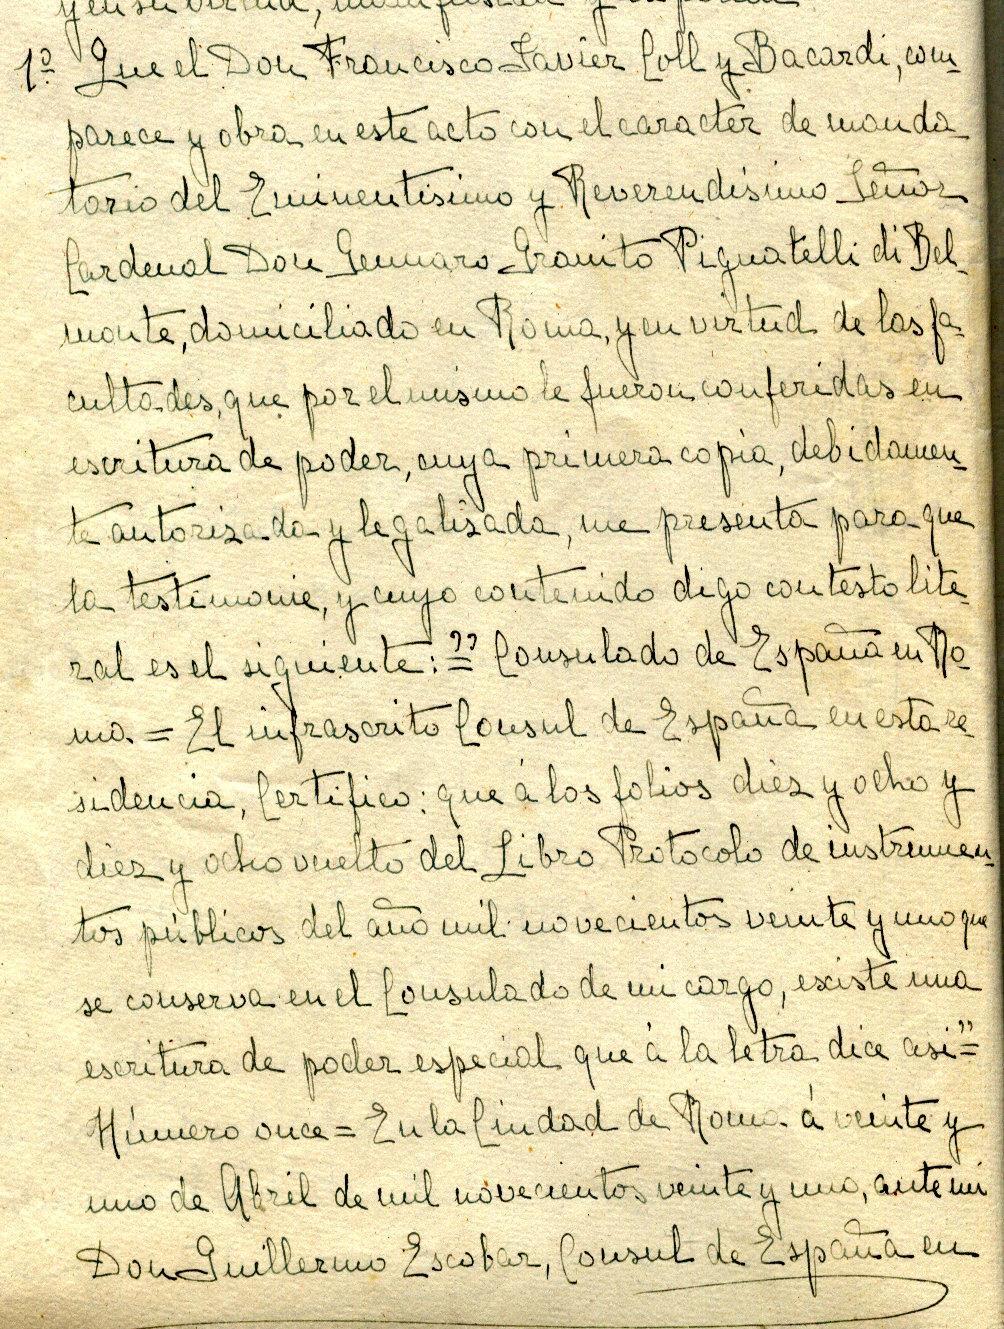 y en su virtud, manifiestan y exponen
1º Que el Don Francisco Javier Coll y Bacardi, com-
parece y obra en este acto con el caracter de manda
tario del Eminentisimo y Reverendisimo Señor
Cardenal Don Gennaro Granito Pignatelli di Bel-
monte, domiciliado en Roma, y en virtud de las fa-
cultades, que por el mismo le fueron conferidas en
escritura de poder, cuya primera copia, debidamen-
te autorizada y legalisada, me presenta para que
la testimonie, y cuyo contenido digo contesto lite-
ral es el siguiente: "= Consulado de España en Ro-
ma = El infrascrito Consul de España en esta re-
sidencia, Certifico: que á los folios diez y ocho y
diez y ocho vuelto del Libro Protocolo de instrumen-
tos públicos del año mil novecientos veinte y uno que
se conserva en el Consulado de mi cargo, existe una
escritura de poder especial que á la letra dice asi "=
Número once = En la Ciudad de Roma á veinte y
uno de Abril de mil novecientos veinte y uno, ante mi
Don Guillermo Escobar, Consul de España en